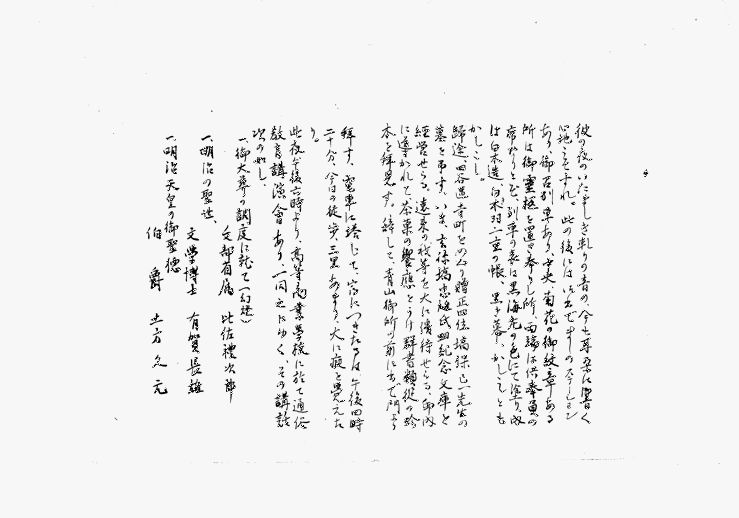 彼の夜のいたましき軋りの音の、今も耳朶に響く
心地こそすれ。此の後には
あり、御召列車あり、中央菊花の御紋章ある
所は御霊柩を置き奉りし所、両端は供奉員の
席なりとぞ、列車の表は黒海老の色にて塗り、内
は白木造、白木羽二重の帳、黒き幕、かしことも
かしこし。
帰途、四谷区寺町をめぐり贈正四位塙保己一先生の
墓を弔す。いま、令孫塙忠雄氏皿紀念文庫を
経営せらる、遠来の我等を大に優待せらる、邸内
に導かれて、茶菓の饗応をうけ群書類従の版
木を拝見す。辞して、青山御所の前に出で門より
拝す、電車に塔じて、宿につきたるは午後四時
二十分、今日の徒歩、三里あまり、大に疲を覚えた
り。
此夜午後六時より、高等商業学校に於て通俗
教育講演会あり、一同之にゆく、その講話
次の如し、
一、御大葬の調度に就て(幻燈)
文部省属 比佐禮次郎
一、明治の聖世、
文学博士 有賀長雄
一、明治天皇の御聖徳
伯爵 土方久元